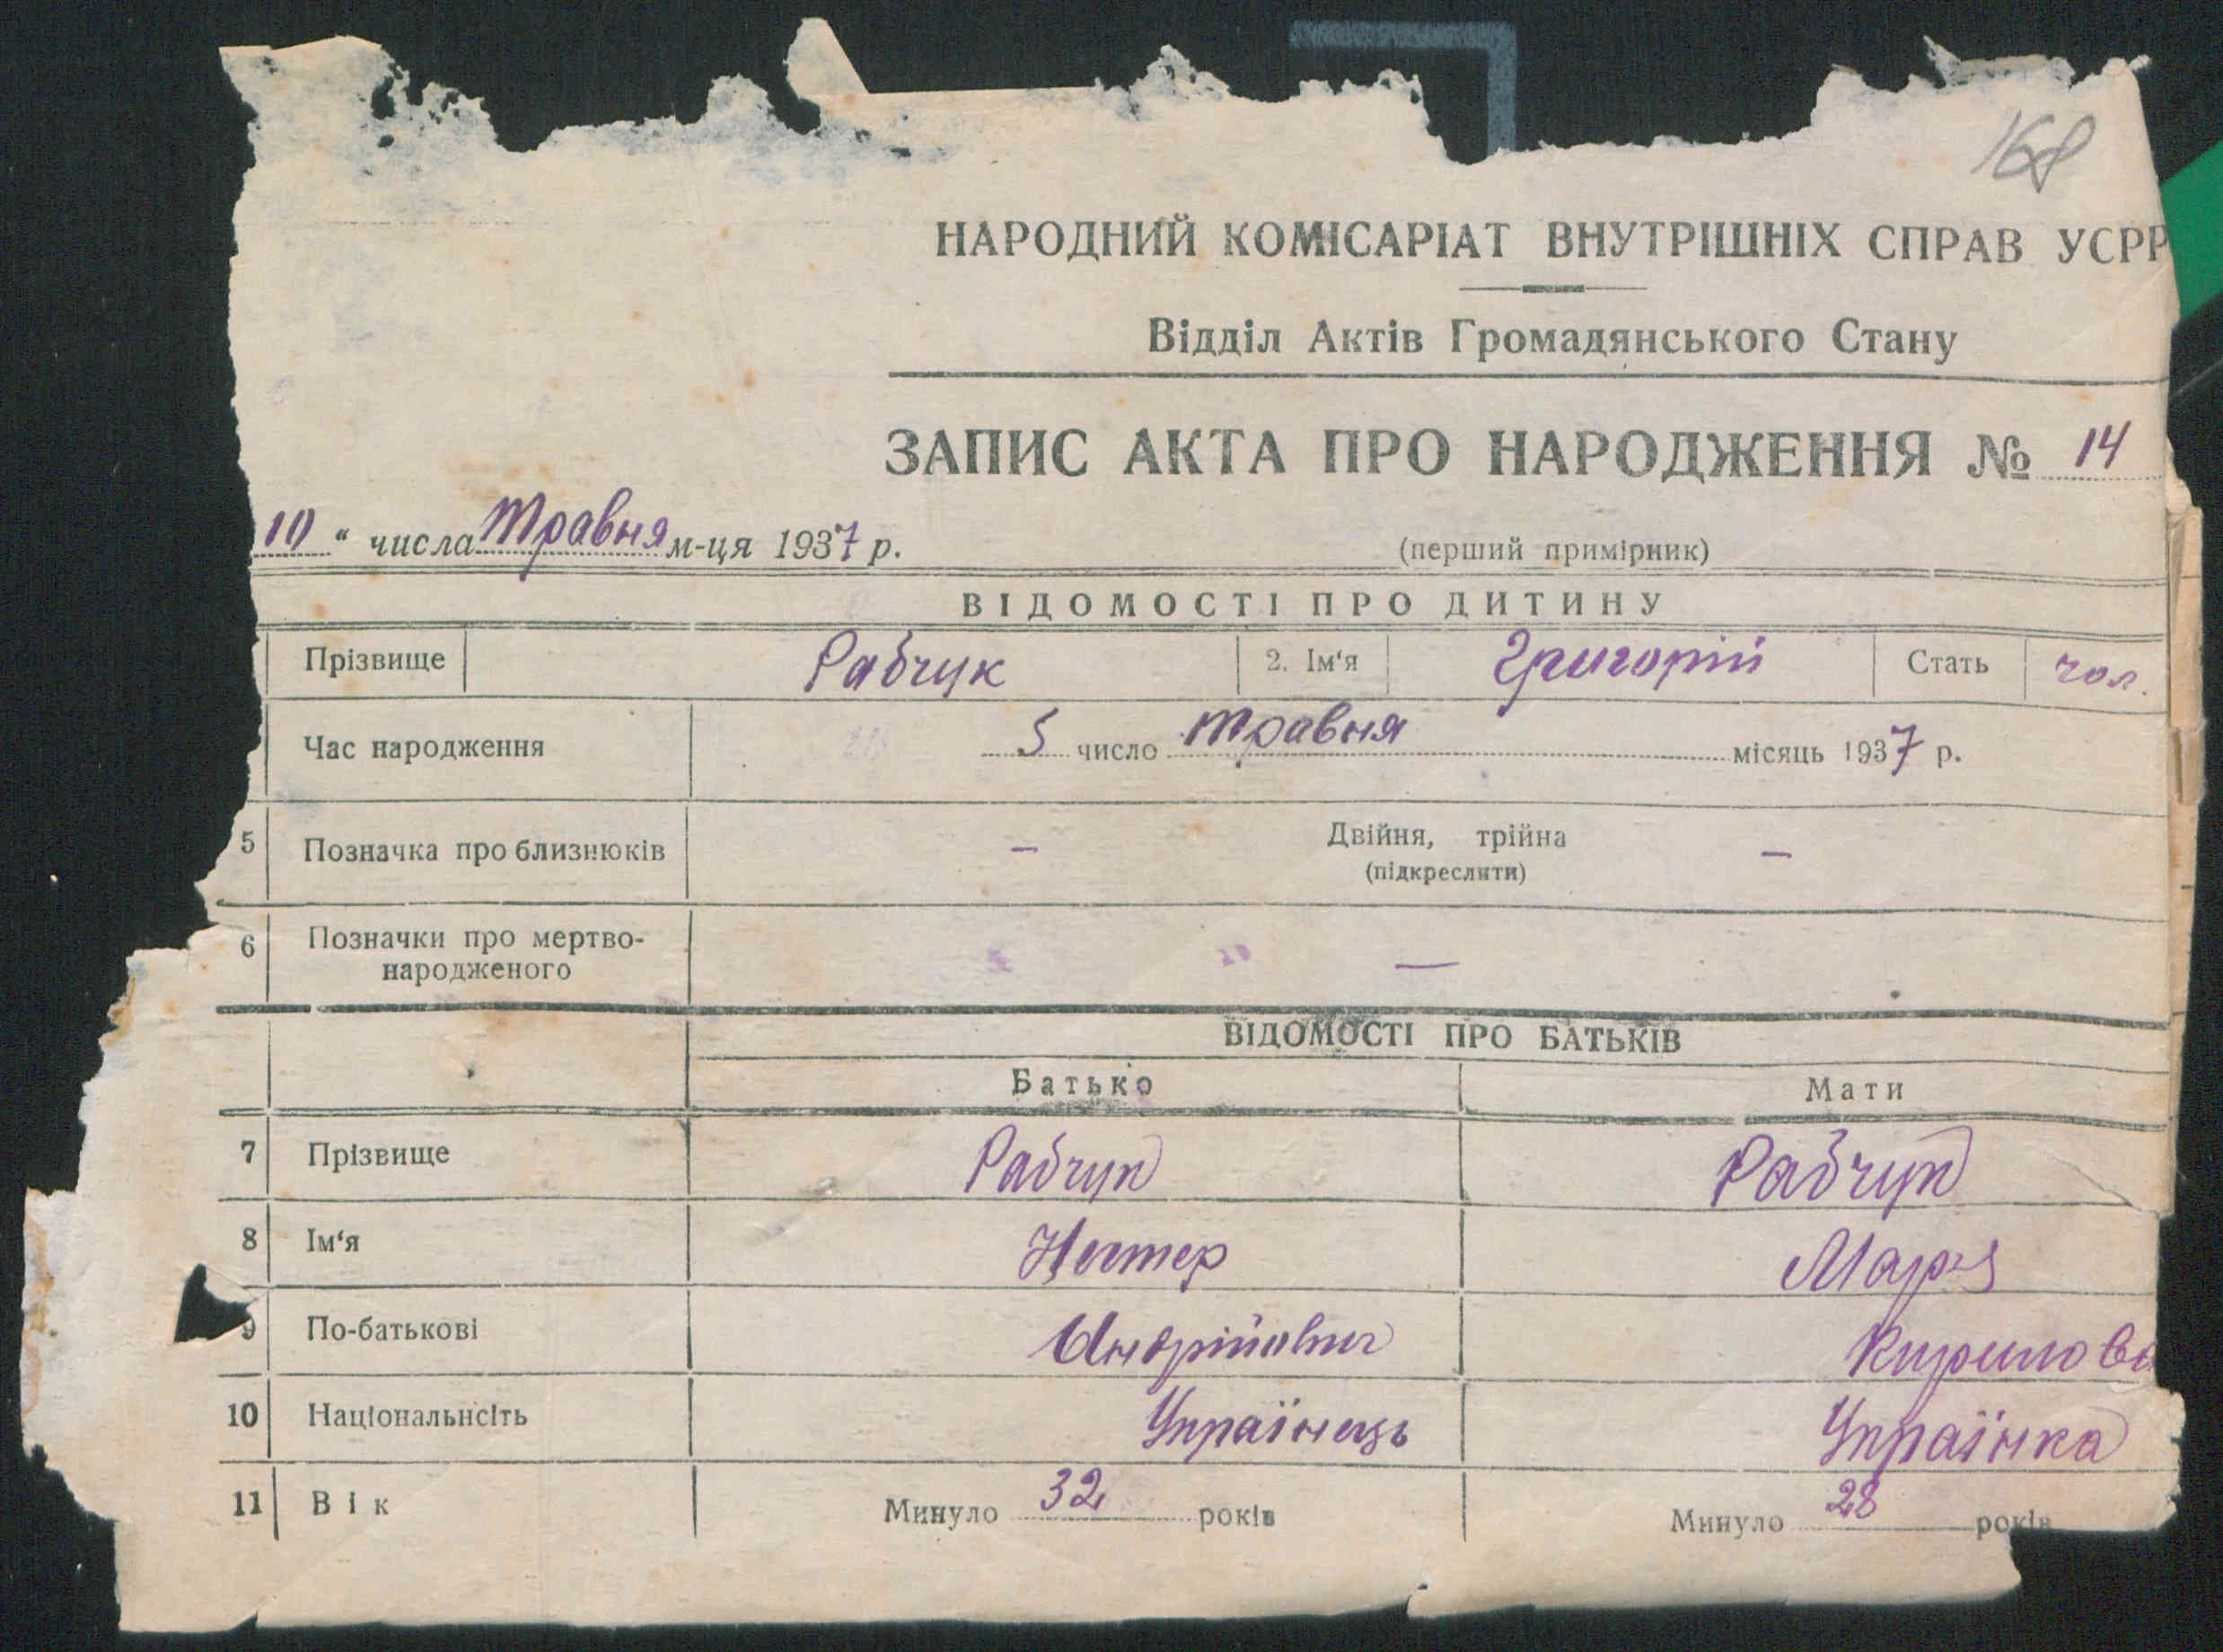 168
НАРОДНИЙ КОМІСАРІАТ ВНУТРІШНІХ СПРАВ УСРР
Відділ Актів Громадянського Стану
ЗАПИС АКТА ПРО НАРОДЖЕННЯ № 14
10 " числа Травня м-ця 1937 р. (перший примірник)
ВІДОМОСТІ ПРО ДИТИНУ
Прізвище Рабчук 2. Ім'я Григорій Стать чол.
Час народження 5 число травня місяць 1937 р.
5 Позначка про близнюків — Двійня, трійна —
(підкреслити)
6 Позначки про мертво-
народженого —
ВІДОМОСТІ ПРО БАТЬКІВ
Батько Мати
7 Прізвище Рабчук Рабчук
8 Ім'я Нестер Марія
9 По-батькові Андрійович Кирилов
10 Національнсіть Українець Українка
11 Вік Минуло 32 років Минуло 28 років